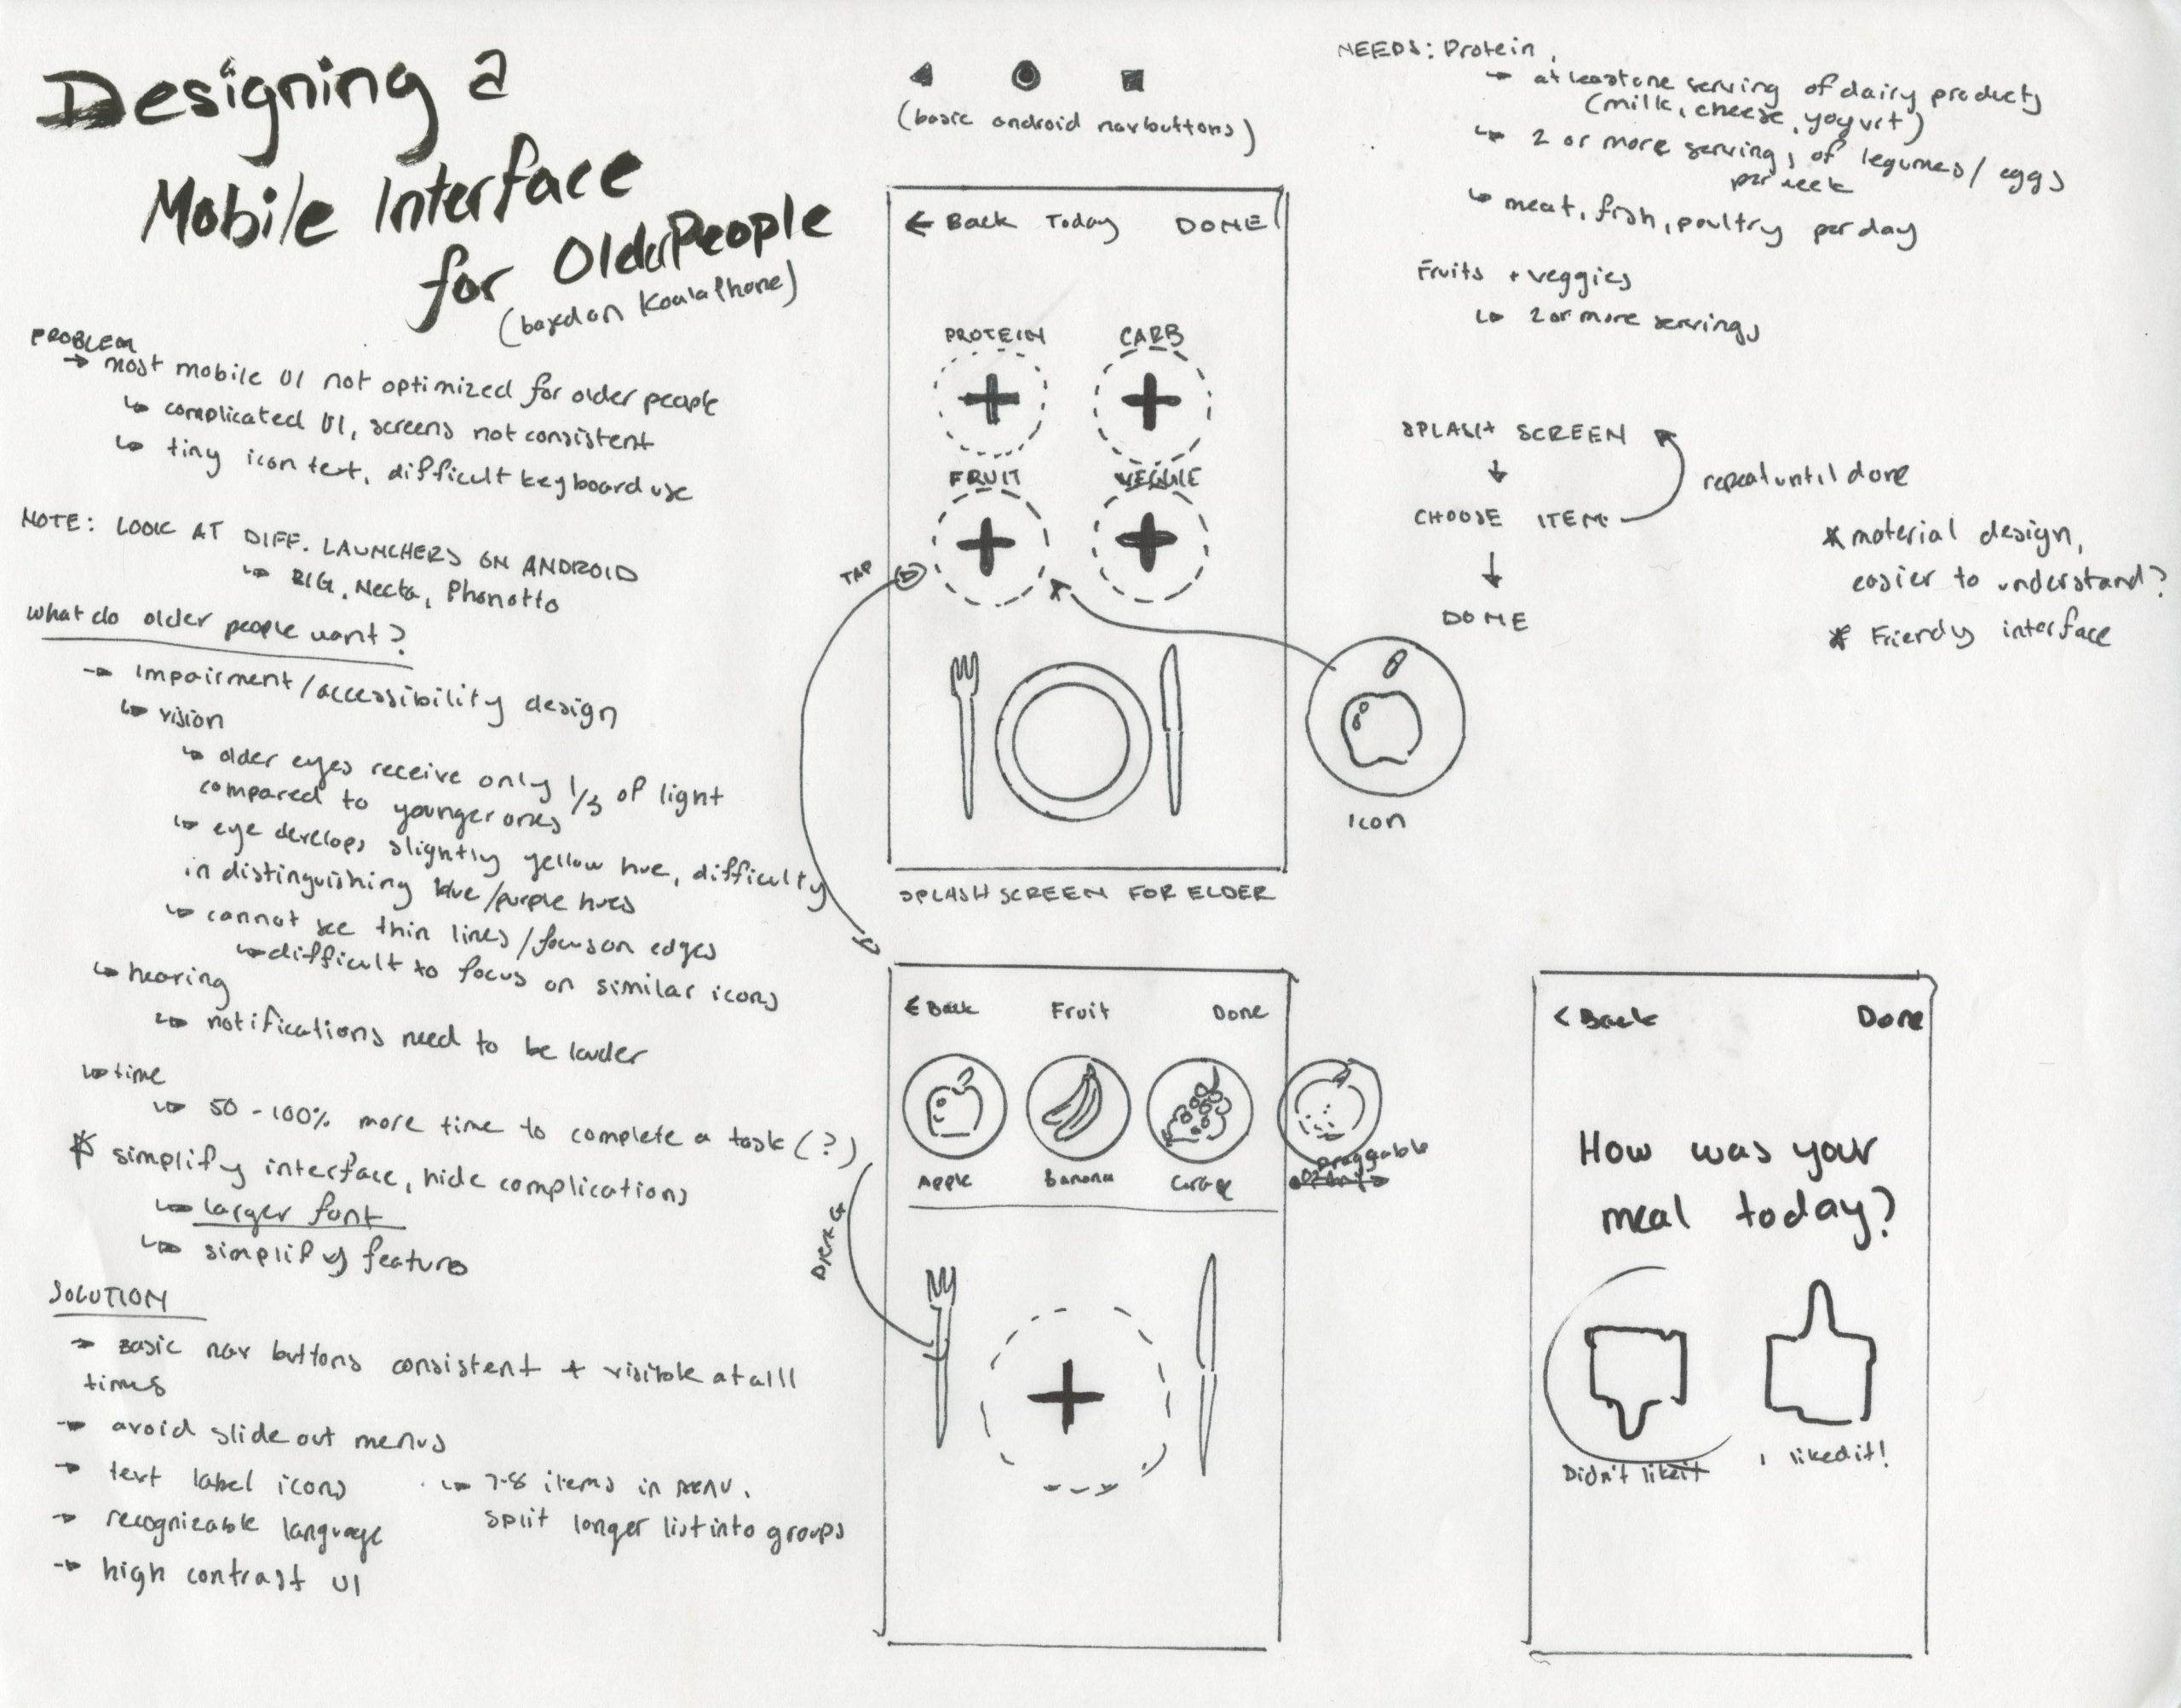 Designing a
Mobile Interface
for Older People
(based on KoalaPhone)
PROBLEM
→ most mobile UI not optimized for older people
↳ complicated UI, screens not consistent
↳ tiny icon text, difficult keyboard use
NOTE: LOOK AT DIFF. LAUNCHERS ON ANDROID
↳ BIG, Necta, Phonotto
what do older people want?
→ impairment/accessibility design
↳ vision
↳ older eyes receive only 1/3 of light
compared to younger ones
↳ eye develops slightly yellow hue, difficulty
in distinguishing blue/purple hues
↳ cannot see thin lines/focus on edges
↳ difficult to focus on similar icons
↳ hearing
↳ notifications need to be louder
↳ time
↳ 50-100% more time to complete a task (?)
* simplify interface, hide complications
↳ larger font
↳ simplify features
SOLUTION
→ Basic nav buttons consistent + visible at alll
times
→ avoid slide out menus
→ text label icons
↳ 7-8 items in menu.
split longer list into groups
→ recognizable language
→ high contrast UI
(basic android nav buttons)
← Back Today DONE
PROTEIN CARB
FRUIT VEGGIE
TAP
Icon
SPLASH SCREEN FOR ELDER
< Back Fruit Done
Apple Banana Grape
Draggable
DRAG
NEEDS: Protein,
→ at least one serving of dairy products
(milk, cheese, yogurt)
↳ 2 or more servings of legumes/eggs
per week
↳ meat, fish, poultry per day
Fruits + veggies
↳ 2 or more servings
SPLASH SCREEN
↓
CHOOSE ITEM
repeat until done
↓
DONE
* material design,
easier to understand?
* Friendy interface
< Back Done
How was your
meal today?
Didn't like it
I liked it!